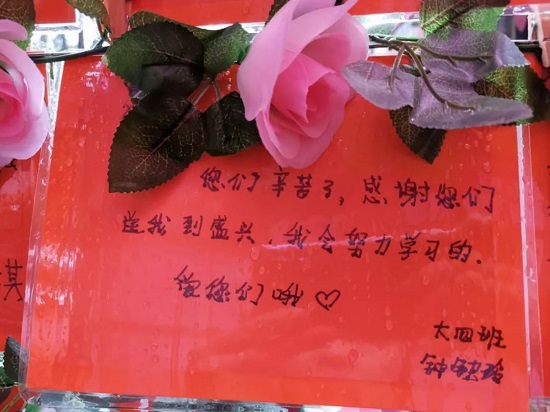 您们辛苦了,感谢您们
送我到盛兴,我会努力学习的.
爱您们哟♡
大四班
其